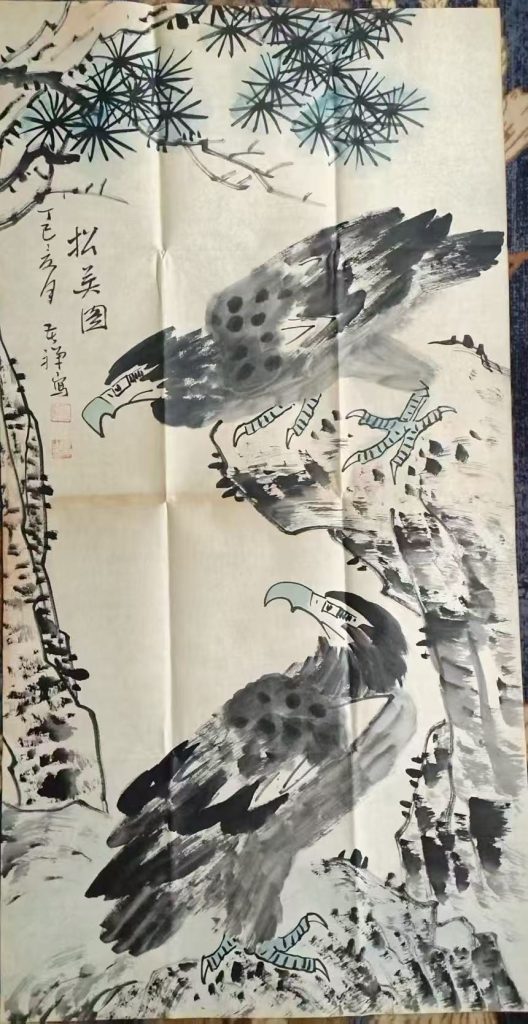 松英图
丁巳月 苦禅写